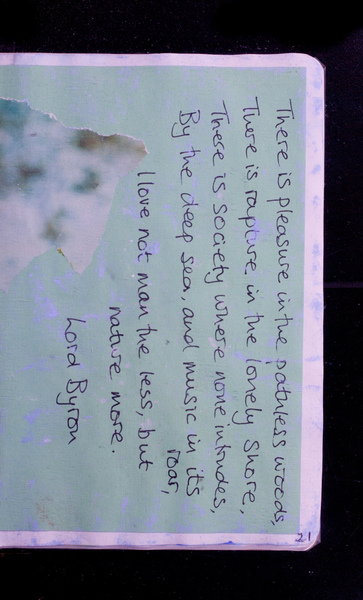 There is pleasure in the pathless woods,
There is rapture in the lonely shore,
There is society where none intrudes,
By the deep sea, and music in it's
roar,
I love not man the less, but
nature more.
Lord Byron
21